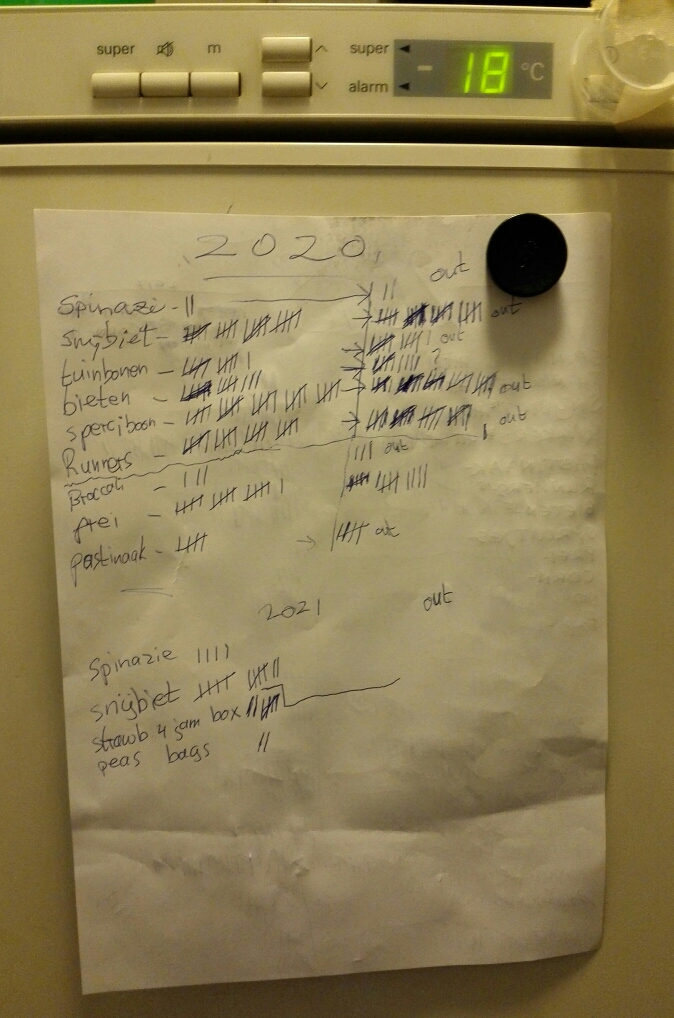 super m super
alarm
- 18 °C
2020
out
Spinazie - || ||
snijbiet - out
tuinbonen - out
bieten - ?
sperciboon out
Runners - out
Broccoli - ||| ||| out
prei -
pastinaak - out
2021 out
Spinazie ||||
snijbiet
strawb 4 jam box
peas bags ||